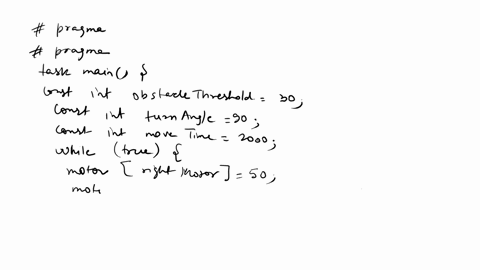 # pragma
# pragma
task main() {
const int obstacleThreshold = 30;
const int turnAngle = 90;
const int moveTime = 2000;
while (true) {
motor [rightMotor] = 50;
moto